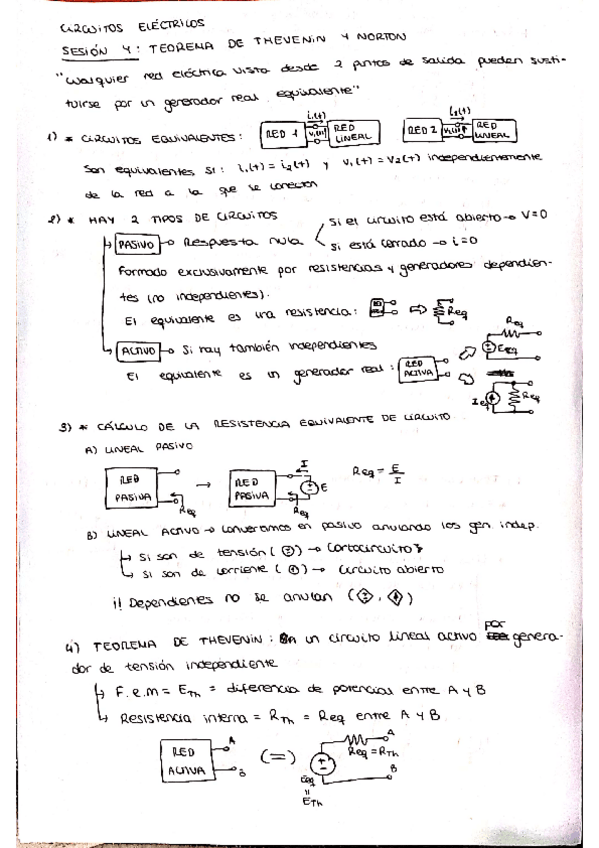 CIRCUITOS ELÉCTRICOS
SESIÓN 4: TEOREMA DE THEVENIN Y NORTON
"Cualquier red eléctrica vista desde 2 puntos de salida pueden susti-
tuirse por un generador real equivalente"
1) * CIRCUITOS EQUIVALENTES: RED 1 i₁(t) v₁(t) RED LINEAL RED 2 i₂(t) v₂(t) RED LINEAL
Son equivalentes si: i₁(t) = i₂(t) y v₁(t) = v₂(t) independientemente
de la red a la que se conecten
2) * HAY 2 TIPOS DE CIRCUITOS
PASIVO → Respuesta nula si el circuito está abierto → V=0
si está cerrado → i=0
Formado exclusivamente por resistencias y generadores dependien-
tes (no independientes).
El equivalente es una resistencia: Req
ACTIVO → Si hay también independientes
El equivalente es un generador real: RED ACTIVA Req Eeq Ieq Req
3) * CÁLCULO DE LA RESISTENCIA EQUIVALENTE DE CIRCUITO
A) LINEAL PASIVO
RED PASIVA Req → RED PASIVA Req I E Req = E/I
B) LINEAL ACTIVO → Convertimos en pasivo anulando los gen. indep.
Si son de tensión ( ) → Cortocircuito
Si son de corriente ( ) → Circuito abierto
¡! Dependientes no se anulan ( , )
4) TEOREMA DE THEVENIN: un circuito lineal activo por genera-
dor de tensión independiente
F.e.m = ETh = diferencia de potencial entre A y B
Resistencia interna = RTh = Req entre A y B
RED ACTIVA A B (=) Req = RTh A B
Eeq
=
ETh